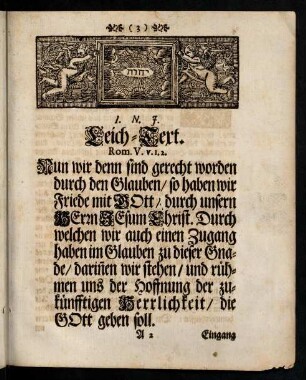 (3)
יהוה
I. N. J.
Leich-Text.
Rom. V. v. 1. 2.
Nun wir denn sind gerecht worden
durch den Glauben/ so haben wir
Friede mit GOtt/ durch unsern
HErrn JEsum Christ. Durch
welchen wir auch einen Zugang
haben im Glauben zu dieser Gna-
de/ dariñen wir stehen/ und rüh-
men uns der Hoffnung der zu-
künfftigen Herrlichkeit/ die
GOtt geben soll.
A 2 Eingang